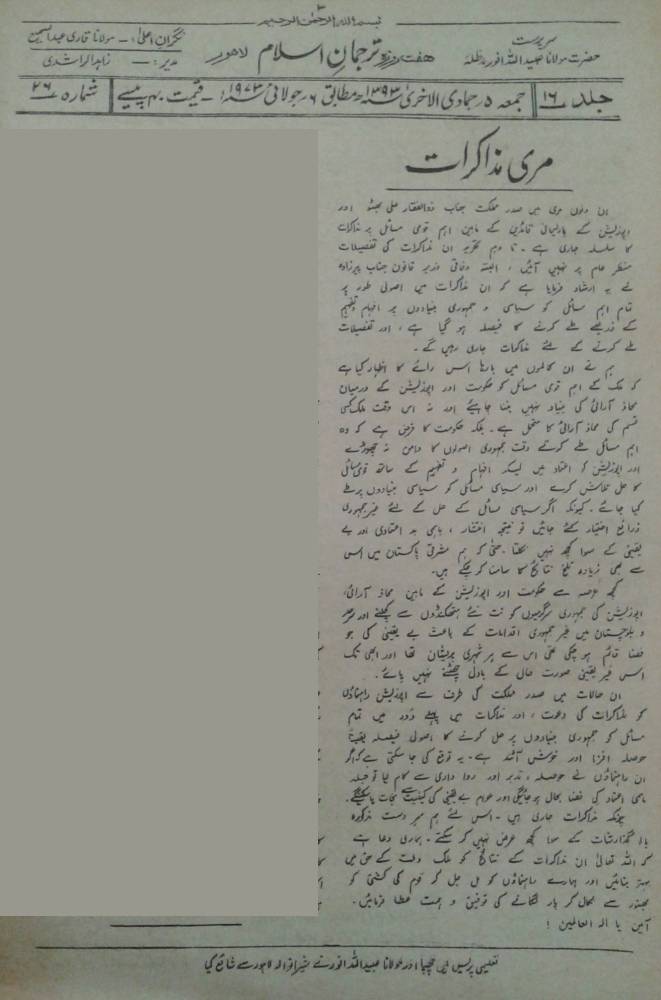 ۳
بسم اللہ الرحمٰن الرحیم
سرپرست
حضرت مولانا عبید اللہ انور مدظلہ
ہفت روزہ ترجمان اسلام لاہور
نگران اعلیٰ:۔ مولانا قاری عبدالسمیع
مدیر:۔ زاہد الراشدی
جلد ۱۶ جمعہ ۵ جمادی الاخریٰ ۱۳۹۳ھ مطابق ۶ جولائی ۱۹۷۳ء قیمت ۴۰ پیسے شمارہ ۲۶
مری مذاکرات
ان دنوں مری میں صدر مملکت جناب ذوالفقار علی بھٹو اور
اپوزیشن کے پارلیمانی قائدین کے مابین اہم قومی مسائل پر مذاکرات
کا سلسلہ جاری ہے۔ تا دم تحریر ان مذاکرات کی تفصیلات
منظر عام پر نہیں آئیں، البتہ وفاقی وزیر قانون جناب پیرزادہ
نے یہ ارشاد فرمایا ہے کہ ان مذاکرات میں اصولی طور پر
تمام اہم مسائل کو سیاسی و جمہوری بنیادوں پر افہام و تفہیم
کے ذریعے طے کرنے کا فیصلہ ہو گیا ہے، اور تفصیلات
طے کرنے کے لئے مذاکرات جاری رہیں گے۔
ہم نے ان کالموں میں بارہا اس رائے کا اظہار کیا ہے
کہ ملک کے اہم قومی مسائل کو حکومت اور اپوزیشن کے درمیان
محاذ آرائی کی بنیاد نہیں بننا چاہیئے اور نہ اس وقت ملک کسی
قسم کی محاذ آرائی کا متحمل ہے۔ بلکہ حکومت کا فرض ہے کہ وہ
اہم مسائل طے کرتے وقت جمہوری اصولوں کا دامن نہ چھوڑے
اور اپوزیشن کو اعتماد میں لیکر افہام و تفہیم کے ساتھ قومی مسائل
کا حل تلاش کرے اور سیاسی مسائل کو سیاسی بنیادوں پر طے
کیا جائے۔ کیونکہ اگر سیاسی مسائل کے حل کے لئے غیر جمہوری
ذرائع اختیار کئے جائیں تو نتیجہ انتشار، باہمی بد اعتمادی اور بے
یقینی کے سوا کچھ نہیں نکلتا۔ حتیٰ کہ ہم مشرقی پاکستان میں اس
سے بھی زیادہ تلخ نتائج کا سامنا کر چکے ہیں۔
کچھ عرصہ سے حکومت اور اپوزیشن کے مابین محاذ آرائی،
اپوزیشن کی جمہوری سرگرمیوں کو نت نئے ہتھکنڈوں سے کچلنے اور سرحد
و بلوچستان میں غیر جمہوری اقدامات کے باعث بے یقینی کی جو
فضا قائم ہو چکی تھی اس سے ہر شہری پریشان تھا اور ابھی تک
اس غیر یقینی صورت حال کے بادل چھٹنے نہیں پائے۔
ان حالات میں صدر مملکت کی طرف سے اپوزیشن راہنماؤں
کو مذاکرات کی دعوت، اور مذاکرات میں پہلے دور میں تمام
مسائل کو جمہوری بنیادوں پر حل کرنے کا اصولی فیصلہ یقیناً
حوصلہ افزا اور خوش آئند ہے۔ یہ توقع کی جا سکتی ہے کہ اگر
ان راہنماؤں نے حوصلہ، تدبر اور روا داری سے کام لیا تو جلد
باہمی اعتماد کی فضا بحال ہو جائیگی اور عوام بے یقینی کی کیفیت سے نجات پا سکیں گے۔
چونکہ مذاکرات جاری ہیں۔ اس لئے ہم سر دست مذکورہ
بالا گذارشات کے سوا کچھ عرض نہیں کر سکتے۔ ہماری دعا ہے
کہ اللہ تعالیٰ ان مذاکرات کے نتائج کو ملک و ملت کے حق میں
بہتر بنائیں اور ہمارے راہنماؤں کو مل جل کر قوم کی کشتی کو
بھنور سے نکال کر پار لگانے کی توفیق و ہمت عطا فرمائیں۔
آمین یا الہ العالمین!
تعلیمی پریس میں چھپا اور مولانا عبید اللہ انور نے شیرانوالہ لاہور سے شائع کیا